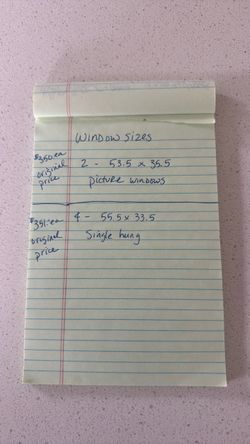 WINDOW SIZES
$350.ea
original
price
2 - 53.5 x 35.5
picture windows
$351.ea
original
price
4 - 55.5 x 33.5
Single hung